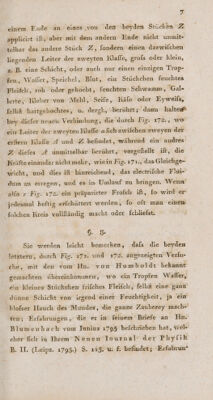 7
einem Ende an eines von den beyden Stücken Z
applicirt ist, aber mit dem andern Ende nicht unmit-
telbar das andere Stück Z, sondern einen dazwischen
liegenden Leiter der zweyten Klasse, groſs oder klein,
z. B. eine Schicht, oder auch nur einen einzigen Trop-
fen, Wasser, Speichel, Blut, ein Stückchen feuchtes
Fleisch, roh oder gekocht, feuchten Schwamm, Gal-
lerte, Kleber von Mehl, Seife, Käse oder Eyweiſs,
selbst hartgesottenes, u. dergl., berührt; dann haben
bey dieser neuen Verbindung, die durch Fig. 172., wo
ein Leiter der zweyten Klasse a sich zwischen zweyen der
erstern Klasse A und Z befindet, während ein andres
Z dieses A unmittelbar berührt, vorgestellt ist, die
Kräfte einander nicht mehr, wie in Fig. 171., das Gleichge-
wicht, und dies ist hinreichend, das electrische Flui-
dum zu erregen, und es in Umlauf zu bringen. Wenn
also z Fig. 172. ein präparirter Frosch ist, so wird er
jedesmal heftig erschüttert werden, so oft man einen
solchen Kreis vollständig macht oder schlieſst.
§. 8.
Sie werden leicht bemerken, daſs die beyden
letztern, durch Fig. 171. und 172. angezeigten Versu-
che, mit den vom Hn. von Humboldt bekannt
gemachten übereinkommen, wo ein Tropfen Wasser,
ein kleines Stückchen frisches Fleisch, selbst eine ganz
dünne Schicht von irgend einer Feuchtigkeit, ja ein
bloſser Hauch des Mundes, die ganze Zauberey mach-
ten; Erfahrungen, die er in seinem Briefe an Hn.
Blumenbach vom Junius 1795 beschrieben hat, wel-
cher sich in Ihrem Neuen Journal der Physik
B. II. (Leipz. 1795.) S. 115. u. f. befindet; Erfahrun-